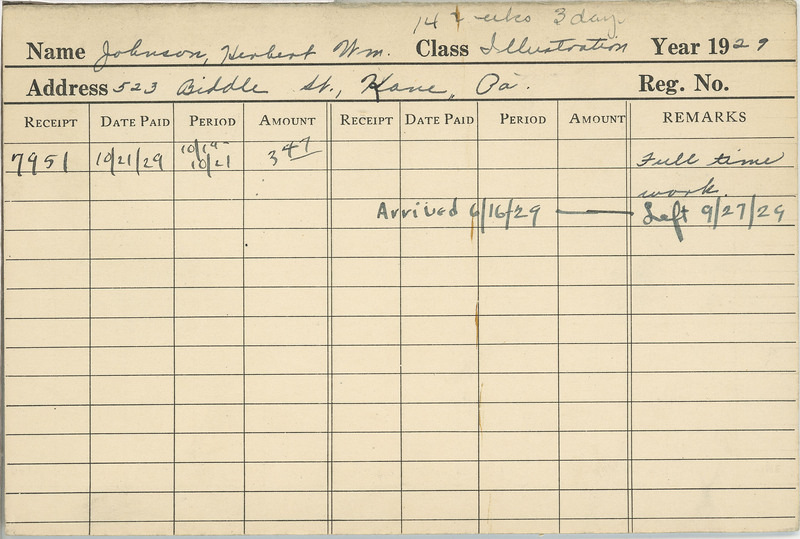 14 weeks 3 days
Name Johnson, Herbert Wm. Class Illustration Year 1929
Address 523 Biddle St., Kane, Pa. Reg. No.
RECEIPT DATE PAID PERIOD AMOUNT RECEIPT DATE PAID PERIOD AMOUNT REMARKS
7951 10/21/29 10/19- 10/21 3 47 Full time
work.
Arrived 6/16/29 — Left 9/27/29